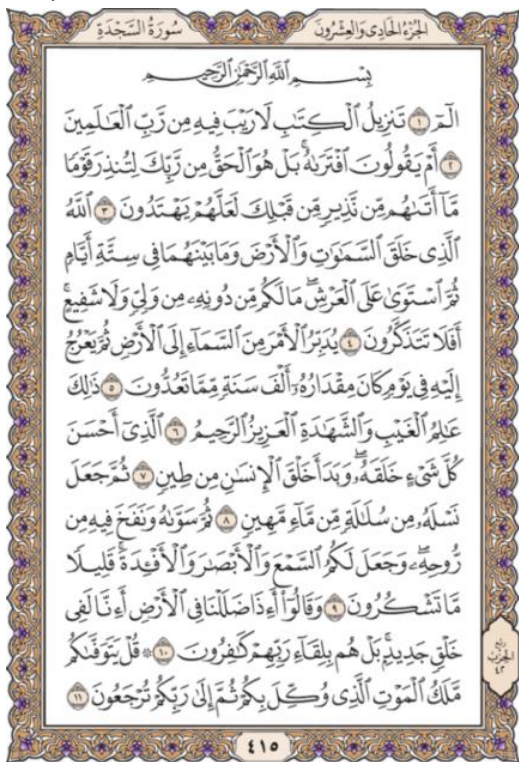 الجُزْءُ الحَادِى وَالعِشْرُونَ
سُورَةُ السَّجْدَةِ
بِسْمِ ٱللَّهِ ٱلرَّحْمَٰنِ ٱلرَّحِيمِ
الٓمٓ ١ تَنزِيلُ ٱلْكِتَٰبِ لَا رَيْبَ فِيهِ مِن رَّبِّ ٱلْعَٰلَمِينَ
٢ أَمْ يَقُولُونَ ٱفْتَرَىٰهُۚ بَلْ هُوَ ٱلْحَقُّ مِن رَّبِّكَ لِتُنذِرَ قَوْمًا
مَّآ أَتَىٰهُم مِّن نَّذِيرٍ مِّن قَبْلِكَ لَعَلَّهُمْ يَهْتَدُونَ ٣ ٱللَّهُ
ٱلَّذِى خَلَقَ ٱلسَّمَٰوَٰتِ وَٱلْأَرْضَ وَمَا بَيْنَهُمَا فِى سِتَّةِ أَيَّامٍ
ثُمَّ ٱسْتَوَىٰ عَلَى ٱلْعَرْشِۖ مَا لَكُم مِّن دُونِهِۦ مِن وَلِىٍّ وَلَا شَفِيعٍۚ
أَفَلَا تَتَذَكَّرُونَ ٤ يُدَبِّرُ ٱلْأَمْرَ مِنَ ٱلسَّمَآءِ إِلَى ٱلْأَرْضِ ثُمَّ يَعْرُجُ
إِلَيْهِ فِى يَوْمٍ كَانَ مِقْدَارُهُۥٓ أَلْفَ سَنَةٍ مِّمَّا تَعُدُّونَ ٥ ذَٰلِكَ
عَٰلِمُ ٱلْغَيْبِ وَٱلشَّهَٰدَةِ ٱلْعَزِيزُ ٱلرَّحِيمُ ٦ ٱلَّذِىٓ أَحْسَنَ
كُلَّ شَىْءٍ خَلَقَهُۥۖ وَبَدَأَ خَلْقَ ٱلْإِنسَٰنِ مِن طِينٍ ٧ ثُمَّ جَعَلَ
نَسْلَهُۥ مِن سُلَٰلَةٍ مِّن مَّآءٍ مَّهِينٍ ٨ ثُمَّ سَوَّىٰهُ وَنَفَخَ فِيهِ مِن
رُّوحِهِۦۖ وَجَعَلَ لَكُمُ ٱلسَّمْعَ وَٱلْأَبْصَٰرَ وَٱلْأَفْـِٔدَةَۚ قَلِيلًا
مَّا تَشْكُرُونَ ٩ وَقَالُوٓا۟ أَءِذَا ضَلَلْنَا فِى ٱلْأَرْضِ أَءِنَّا لَفِى
خَلْقٍ جَدِيدٍۭۚ بَلْ هُم بِلِقَآءِ رَبِّهِمْ كَٰفِرُونَ ١٠ ۞ قُلْ يَتَوَفَّىٰكُم
مَّلَكُ ٱلْمَوْتِ ٱلَّذِى وُكِّلَ بِكُمْ ثُمَّ إِلَىٰ رَبِّكُمْ تُرْجَعُونَ ١١
رُبْع
الحِزْب
٤٢
٤١٥